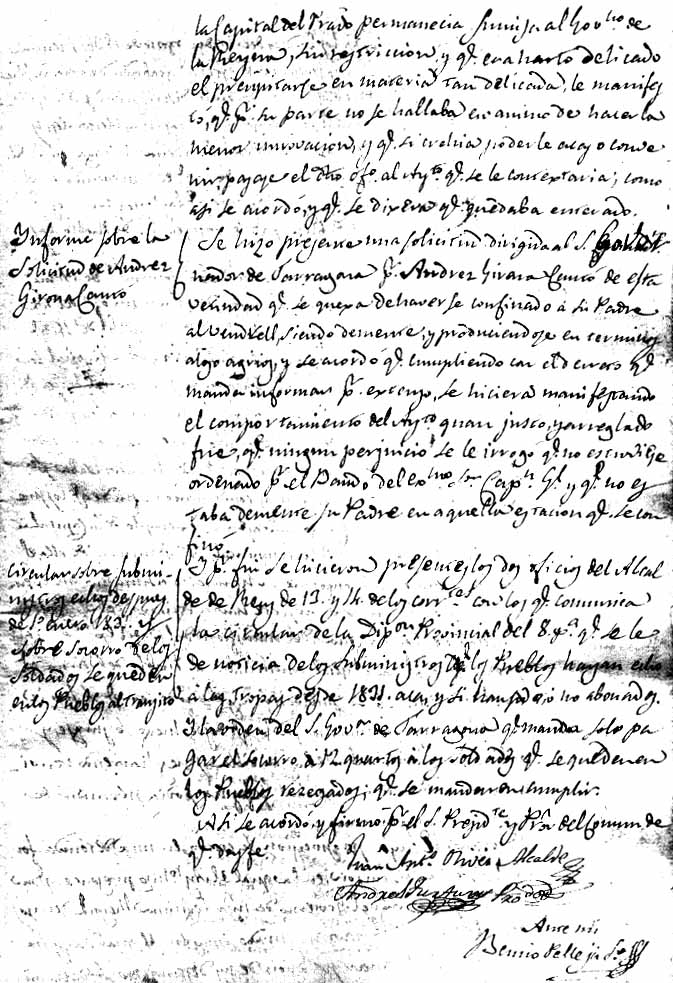 la Capital del Prado permanecia sumisa al Gov.no de
la Reyna, sin restriccion, y q.e era harto delicado
el precipitarse en materia tan delicada, le manifes
tó, q.e p.r su parte no se hallaba en animo de hacer la
menor innovacion, y q.e si crehia poderle acaso conve
nir pasase el dho ofo. al Ayto. q.e se le contextaria; como
asi se acordó, y q.e se dixera q.e quedaba enterado.
Informe sobre la
Solicitud de Andres
Girona Cauco
Se hizo presente una solicitud dirigida al S. Gover
nador de Tarragona p.r Andres Girara Cauco de esta
vecindad q.e se quexa de haverse confinado á su Padre
al Vendrell, siendo demente, y produciendose en terminos
algo agrios, y se acordó q.e cumpliendo con el decreto q.e
manda informar p.r extenso, se hiciera manifestando
el comportamiento del Ayto quan justo, y arreglado
fue, q.e ningun perjuicio se le irrogo q.e no estuviese
ordenado p.r el Bando del Exmo Sor Capn Gl. y q.e no es
taba demente su Padre en aquella estacion q.e se con
finó.
Circular sobre submi-
nistros echos despues
de 1º Enero 183. y
sobre Socorro de los
Soldados se queden
en los Pueblos al transito
Y p.r fin se hicieron presentes los dos oficios del Alcal
de de Reus de 13 y 14 de los corr.tes con los q.e comunica
la circular de la Dipon Provincial del 8. q.e se le
de noticia de los subministros q.e los Pueblos hayan echo
á las tropas desde 1831 aca, y si han sido, o no abonados.
Y la orden del S. Govor de Tarragona q.e manda solo pa
gar el socorro á 12 quartos á los soldados q.e se queden en
los Pueblos rezagados; q.e se mandaron cumplir.
Asi se acordó, y firmó p.r el S. Presidte y Pror del Comun de
q.e doy fe
Juan Anto. Olivé Alcalde
Andres
Ante mi
Benito Pelleja So.